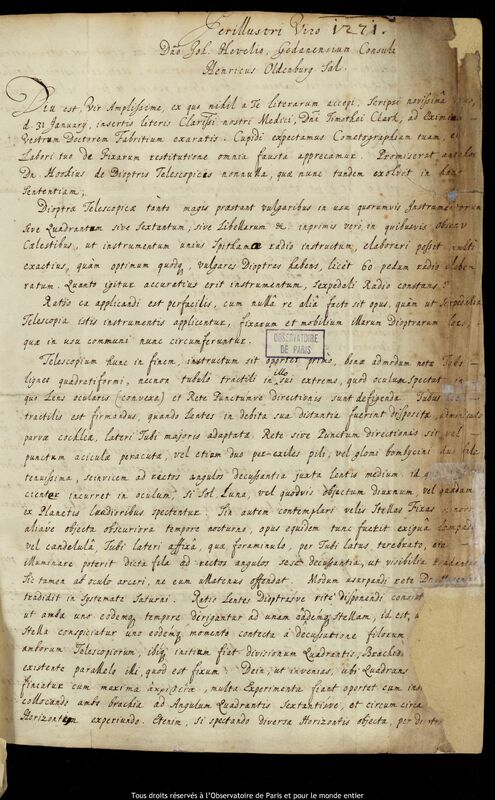 Perillustri Viro 1271.
Dno Joh. Hevelio, Gedanensium Consuli
Henricus Oldenburg Sal.
Diu est, Vir Amplissime, ex quo nihil a Te literarum accepi, Scripsi novissimè
d. 31 January, insertis literis Clarissi nostri Medici, Dni Timothei Clark, ad Eximium
Vestrum Doctorem Fabritium exaratis. Cupidi expectamus Cometographiam tuam, et
Labori tuo de Fixarum restitutione omnia fausta apprecamur. Promiserat
Dn. Hookius de Dioptris Telescopicis nonnulla, quæ nunc tandem exolvit in hanc
Sententiam;
Dioptræ Telescopicæ tantò magis præstant vulgaribus in usu quorumvis Instrumentorum
sive Quadrantum sive Sextantum, sive Libellarum &c inprimis verò in quibusvis observ
Cælestibus, ut instrumentum unius Spithamæ radio instructum, elaborari possit multò
exactius, quàm optimum quodq, vulgares Dioptras habens, licèt 60 pedum radio elabo
ratum. Quanto igitur accuratius erit instrumentum, Sexpedali Radio constans?
Ratio ea applicandi est perfacilis, cum nullâ re aliâ facto sit opus, quàm ut Sexpedalia
Telescopia istis instrumentis applicentur, fixarum et mobilium illarum Dioptrarum loco,
quæ in usu communi nunc circumferuntur.
OBSERVATOIRE
DE PARIS
Telescopium hunc in finem, instructum sit oportet primò, bene admodum nota Tubo
ligneo quadratiformi, necnon tubulo tractili in illo sus extremo, quod oculum spectat in
quo Lens ocularis (convexa) et Rete Punctumve directionis sunt defigenda. Tubus
tractilis est firmandus, quando Lentes in debita sua distantia fuerint disposita, adminiculo
parvæ cochleæ, lateri Tubi majoris adaptatæ. Rete sive Punctum directionis sit vel
punctum aciculæ peracutæ, vel etiam duo per-exiles pili, vel gloni bombycini duo fila
tenuissima, seinvicem ad rectos angulos decussantia juxta Lentis medium id
cienter incurret in oculum, si Sol, Luna, vel quodvis objectum diurnum, vel quædam
ex Planetis lucidioribus spectentur. Sin autem contemplari velis Stellas Fixas minores
aliave objecta obscuriora tempore nocturno, opus equidem tunc fuerit exiguâ lampade
vel candelulâ, Tubi lateri affixâ, quæ foraminulo, per Tubi latus, terebrato,
illuminare poterit dicta fila ad rectos angulos sese decussantia, ut visibilia tradantur
Sic tamen ab oculo arceri, ne eum Mutenus offendat. Modum usurpandi rete Dn. Hugenius
tradidit in Systemate Saturni. Ratio Lentes Dioptrasve ritè disponendi consist
ut ambæ uno eodemq tempore dirigantur ad unam eandemq Stellam, id est, u
Stella conspiciatur uno eodemq momento contecta à decussatione filorum
amborum Telescopiorum, ibiq initium fiat divisionum Quadrantis, Brachio
existente parallelo illi, quod est fixum. Dein, ut invenias, ubi Quadrans
finiatur cum maxima ἀκριβείᾳ, multa Experimenta fiant oportet cum ins
collocando ambo brachia ad Angulum Quadrantis Sextantisve, et circum circa
Horizontem experiundo. Etenim, si spectando diversa Horizontis objecta, per dioptr
Tous droits réservés à l'Observatoire de Paris et pour le monde entier